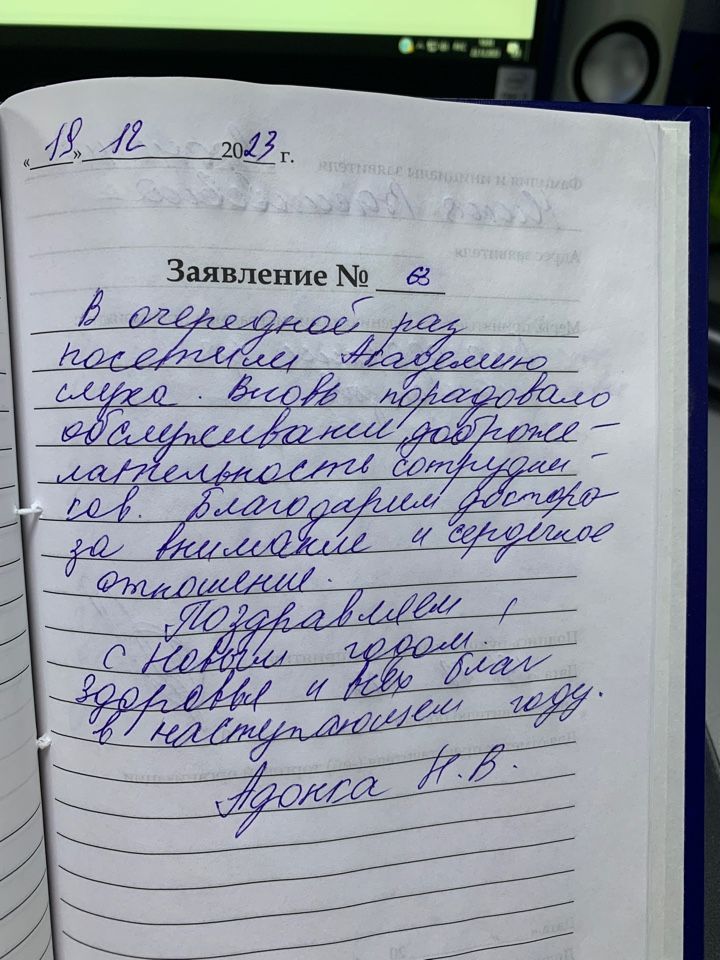 «19» 12 2023 г.
Заявление № 63
В очередной раз
посетили Академию
слуха. Вновь порадовало
обслуживание, доброже-
лательность сотрудни-
ков. Благодарим доктора
за внимание и сердечное
отношение.
Поздравляем
с Новым годом!
Здоровья и всех благ
в наступающем году.
Адонка Н.В.